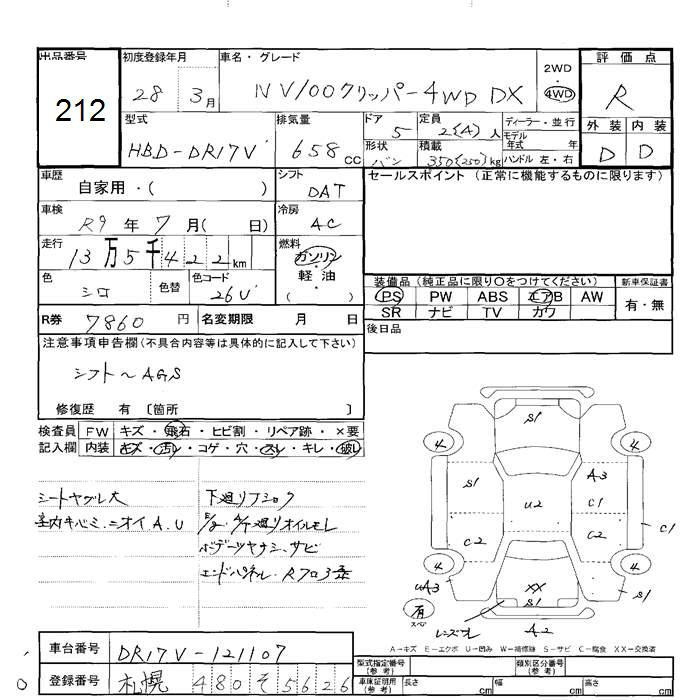 出品番号 初度登録年月 車名・グレード 2WD ・ 4WD 評価点
212 28 3月 NV100クリッパー4WD DX R
型式 排気量 ドア 定員 ディーラー・並行 外装 内装
HBD-DR17V 658cc 5 2(4)人 モデル年式 年 D D
形状 積載 ハンドル 左・右
バン 350(250)kg
車歴 シフト セールスポイント (正常に機能するものに限ります)
自家用・( ) DAT
車検 冷房
R9年7月( 日) AC
走行 燃料
13万5千422km ガソリン・軽油( )
色 色替 色コード 装備品 (純正品に限り○をつけてください) 新車保証書
シロ 26U PS PW ABS エアB AW 有・無
SR ナビ TV カワ
R券 7860円 名変期限 月 日 後日品
注意事項申告欄 (不具合内容等は具体的に記入して下さい)
シフト〜AGS
修復歴 有 〔箇所 〕
検査員 FW キズ・飛石・ヒビ割・リペア跡・×要
記入欄 内装 キズ・汚レ・コゲ・穴・スレ・キレ・破レ
シートヤブレ大 下廻りフショク
室内キバミ、ニオイA.U E/g、A/T廻りオイルモレ
ボデーツヤナシ、サビ
エンドパネル、Rフロア歪
S1
4 4
S1 A3
C1
U2
C2 C2 C1
4 4
UA3 XX S1
S1
有 スペア
レンズワレ A2
A→キズ E→エクボ U→凹み W→補修跡 S→サビ C→腐食 XX→交換済
車台番号 DR17V-121107 型式指定番号(参考) 類別区分番号(参考)
登録番号 札幌 480 そ 5626 車庫証明用(参考) 長さ cm 幅 cm 高さ cm